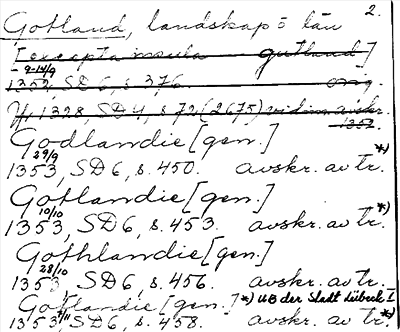 Gotland, landskap o län 2.
[excepta insula gutland]
9-14/9
1352, SD6, s. 376. orig.
1328, SD4, s. 72 (2675) vidim. avskr.
1352.
Godlandie [gen.]
29/9 *)
1353, SD6, s. 450. avskr. av tr.
Gotlandie [gen.]
10/10 *)
1353, SD6, s. 453. avskr. av tr.
Gothlandie [gen.]
28/10
1353, SD6, s. 456. avskr. av tr.
Gotlandie [gen.] *) UB der Stadt Lübeck I
1353 /11 SD6, s. 458. avskr. av tr. *)